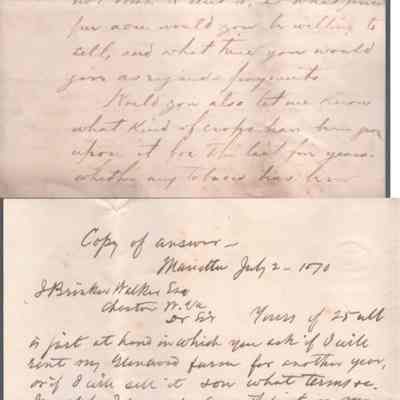 per acre would you be willing to
sell, and what time you would
give as regards payments
Would you also let me know
what kind of crops have been put
upon it for the last few years.
whether any tobacco has been
Copy of answer —
Marietta July 2 - 1870
J Brinker Walker Esq
Chester W. Va
Dr Sir Yours of 25 ult
is just at hand in which you ask if I will
rent my Glenwood farm for another year,
or if I will sell it &on what terms &c.